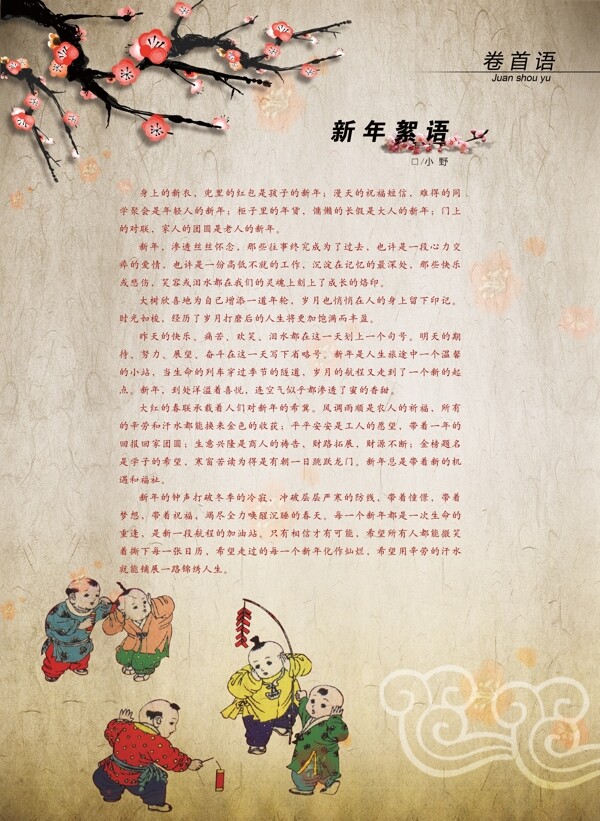 卷首语
Juan shou yu
新年絮语
□/小 野
身上的新衣，兜里的红包是孩子的新年；漫天的祝福短信，难得的同
学聚会是年轻人的新年；柜子里的年货，慵懒的长假是大人的新年；门上
的对联，家人的团圆是老人的新年。
新年，渗透丝丝怀念，那些往事终究成为了过去，也许是一段心力交
瘁的爱情，也许是一份高低不就的工作，沉淀在记忆的最深处，那些快乐
或悲伤，笑容或泪水都在我们的灵魂上刻上了成长的烙印。
大树欣喜地为自己增添一道年轮，岁月也悄悄在人的身上留下印记。
时光如梭，经历了岁月打磨后的人生将更加饱满而丰盈。
昨天的快乐、痛苦、欢笑、泪水都在这一天划上一个句号。明天的期
待、努力、展望、奋斗在这一天写下省略号。新年是人生旅途中一个温馨
的小站，当生命的列车穿过季节的隧道，岁月的航程又走到了一个新的起
点。新年，到处洋溢着喜悦，连空气似乎都渗透了蜜的香甜。
大红的春联承载着人们对新年的希冀。风调雨顺是农人的祈福，所有
的辛劳和汗水都能换来金色的收获；平平安安是工人的愿望，带着一年的
回报回家团圆；生意兴隆是商人的祷告，财路拓展，财源不断；金榜题名
是学子的希望，寒窗苦读为得是有朝一日跳跃龙门。新年总是带着新的机
遇和福祉。
新年的钟声打破冬季的冷寂，冲破层层严寒的防线，带着憧憬、带着
梦想、带着祝福，竭尽全力唤醒沉睡的春天。每一个新年都是一次生命的
重逢，是新一段航程的加油站。只有相信才有可能，希望所有人都能微笑
着撕下每一张日历，希望走过的每一个新年化作灿烂，希望用辛劳的汗水
就能铺展一路锦绣人生。